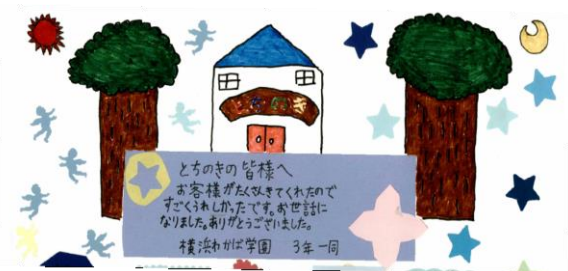 とちのき
とちのきの皆様へ
お客様がたくさんきてくれたので
すごくうれしかったです。お世話に
なりました。ありがとうございました。
横浜わかば学園 3年一同